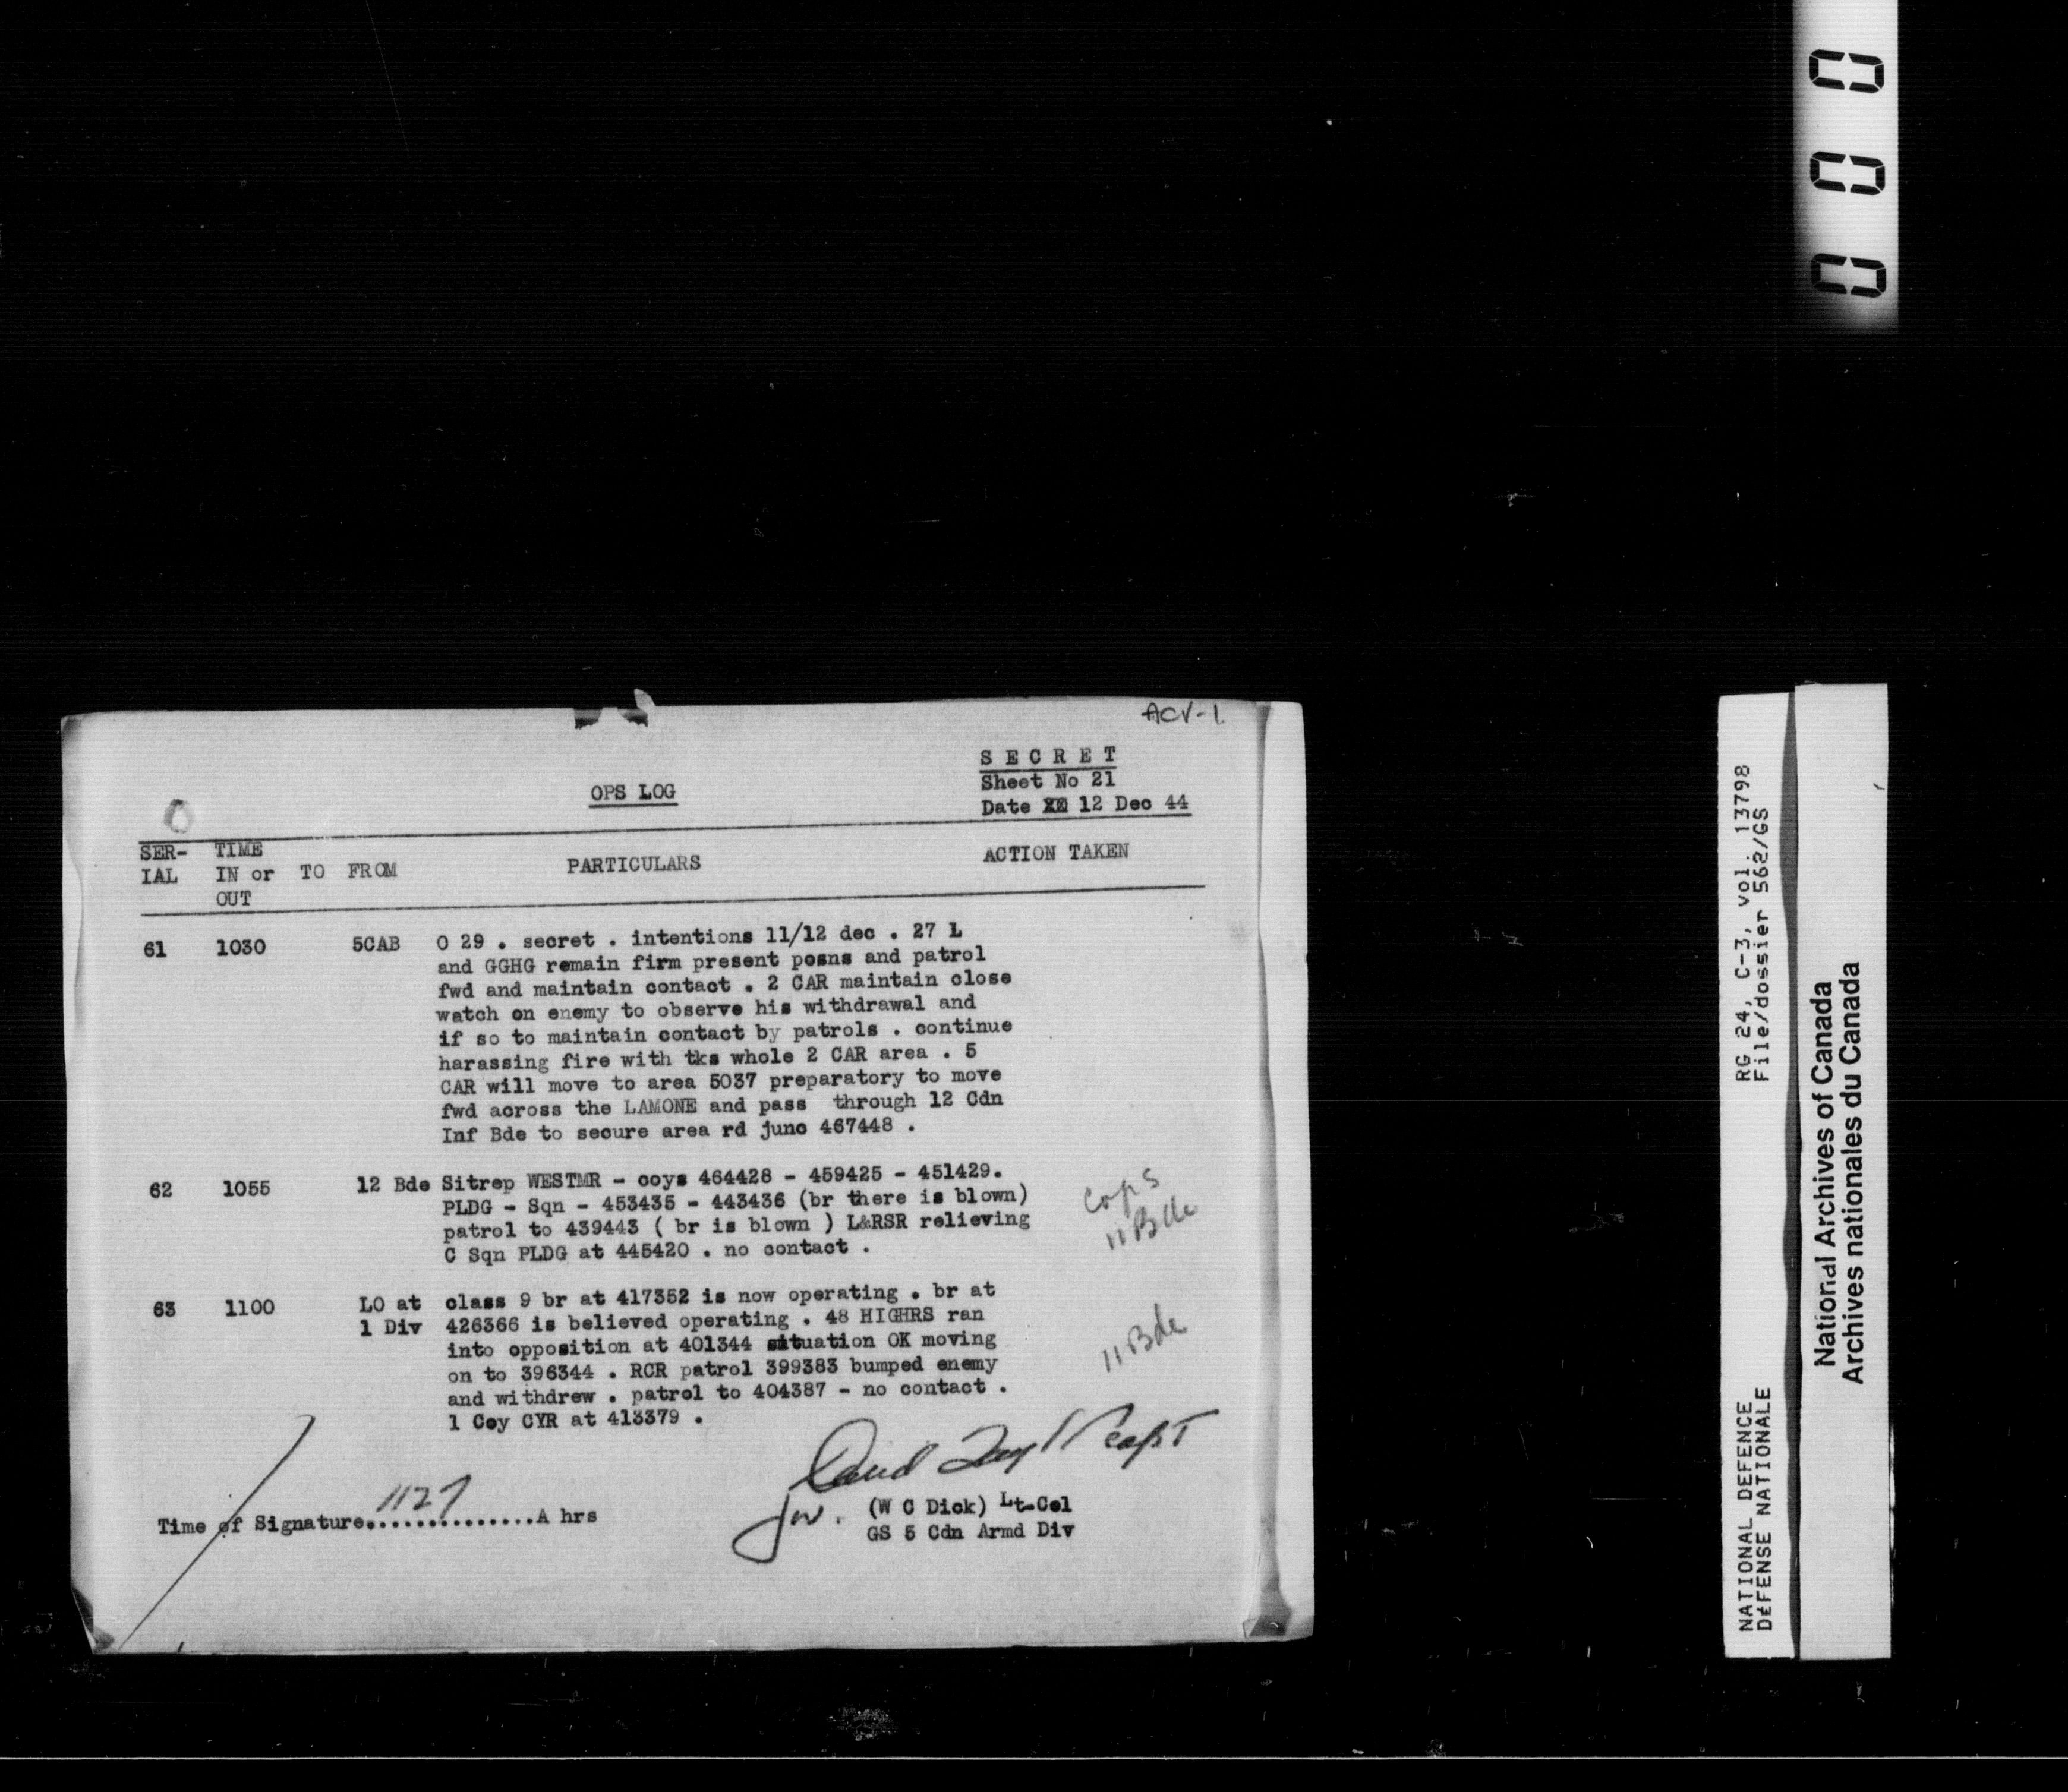 000
ACV-1
S E C R E T
Sheet No 21
OPS LOG
Date 12 Dec 44
SER-IAL TIME IN or OUT TO FROM PARTICULARS ACTION TAKEN
61 1030 5CAB O 29 . secret . intentions 11/12 dec . 27 L
and GGHG remain firm present posns and patrol
fwd and maintain contact . 2 CAR maintain close
watch on enemy to observe his withdrawal and
if so to maintain contact by patrols . continue
harassing fire with tks whole 2 CAR area . 5
CAR will move to area 5037 preparatory to move
fwd across the LAMONE and pass through 12 Cdn
Inf Bde to secure area rd junc 467448 .
62 1055 12 Bde Sitrep WESTMR - coys 464428 - 459425 - 451429.
PLDG - Sqn - 453435 - 443436 (br there is blown)
patrol to 439443 ( br is blown ) L&RSR relieving
C Sqn PLDG at 445420 . no contact .
corps
11 Bde
63 1100 LO at class 9 br at 417352 is now operating . br at
1 Div 426366 is believed operating . 48 HIGHRS ran
into opposition at 401344 situation OK moving
on to 396344 . RCR patrol 399383 bumped enemy
and withdrew . patrol to 404387 - no contact .
1 Coy CYR at 413379 .
11 Bde
Capt
Time of Signature 1127 A hrs
for. (W C Dick) Lt-Col
GS 5 Cdn Armd Div
RG 24, C-3, vol. 13798
File/dossier 562/GS
NATIONAL DEFENCE
DÉFENSE NATIONALE
National Archives of Canada
Archives nationales du Canada